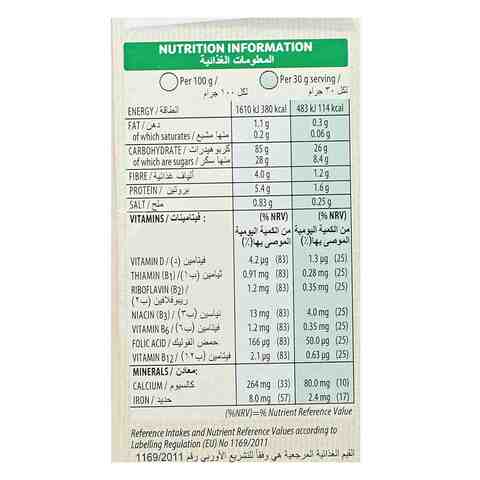 NUTRITION INFORMATION
المعلومات الغذائية
Per 100 g / Per 30 g serving /
لكل ١٠٠ جرام لكل ٣٠ جرام
ENERGY / الطاقة / 1610 kJ 380 kcal 483 kJ 114 kcal
FAT / دهن / 1.1 g 0.3 g
of which saturates / منها مشبع / 0.2 g 0.06 g
CARBOHYDRATE / كربوهيدرات / 85 g 26 g
of which are sugars / منها سكر / 28 g 8.4 g
FIBRE / ألياف غذائية / 4.0 g 1.2 g
PROTEIN / بروتين / 5.4 g 1.6 g
SALT / ملح 0.83 g 0.25 g
VITAMINS / فيتامينات : (% NRV) (% NRV)
من الكمية اليومية من الكمية اليومية
الموصى بها(٪) الموصى بها(٪)
VITAMIN D / فيتامين (د) / 4.2 µg (83) 1.3 µg (25)
THIAMIN (B1) / ثيامين (ب١) / 0.91 mg (83) 0.28 mg (25)
RIBOFLAVIN (B2) / 1.2 mg (83) 0.35 mg (25)
ريبوفلافين (ب٢) /
NIACIN (B3) / نياسين (ب٣) / 13 mg (83) 4.0 mg (25)
VITAMIN B6 / فيتامين (ب٦) / 1.2 mg (83) 0.35 mg (25)
FOLIC ACID / حمض الفوليك / 166 µg (83) 50.0 µg (25)
VITAMIN B12 / فيتامين (ب١٢) / 2.1 µg (83) 0.63 µg (25)
MINERALS / معادن :
CALCIUM / كالسيوم / 264 mg (33) 80.0 mg (10)
IRON / حديد / 8.0 mg (57) 2.4 mg (17)
(%NRV)=% Nutrient Reference Value
Reference Intakes and Nutrient Reference Values according to
Labelling Regulation (EU) No 1169/2011
القيم الغذائية المرجعية هي وفقاً للتشريع الأوربي رقم 1169/2011